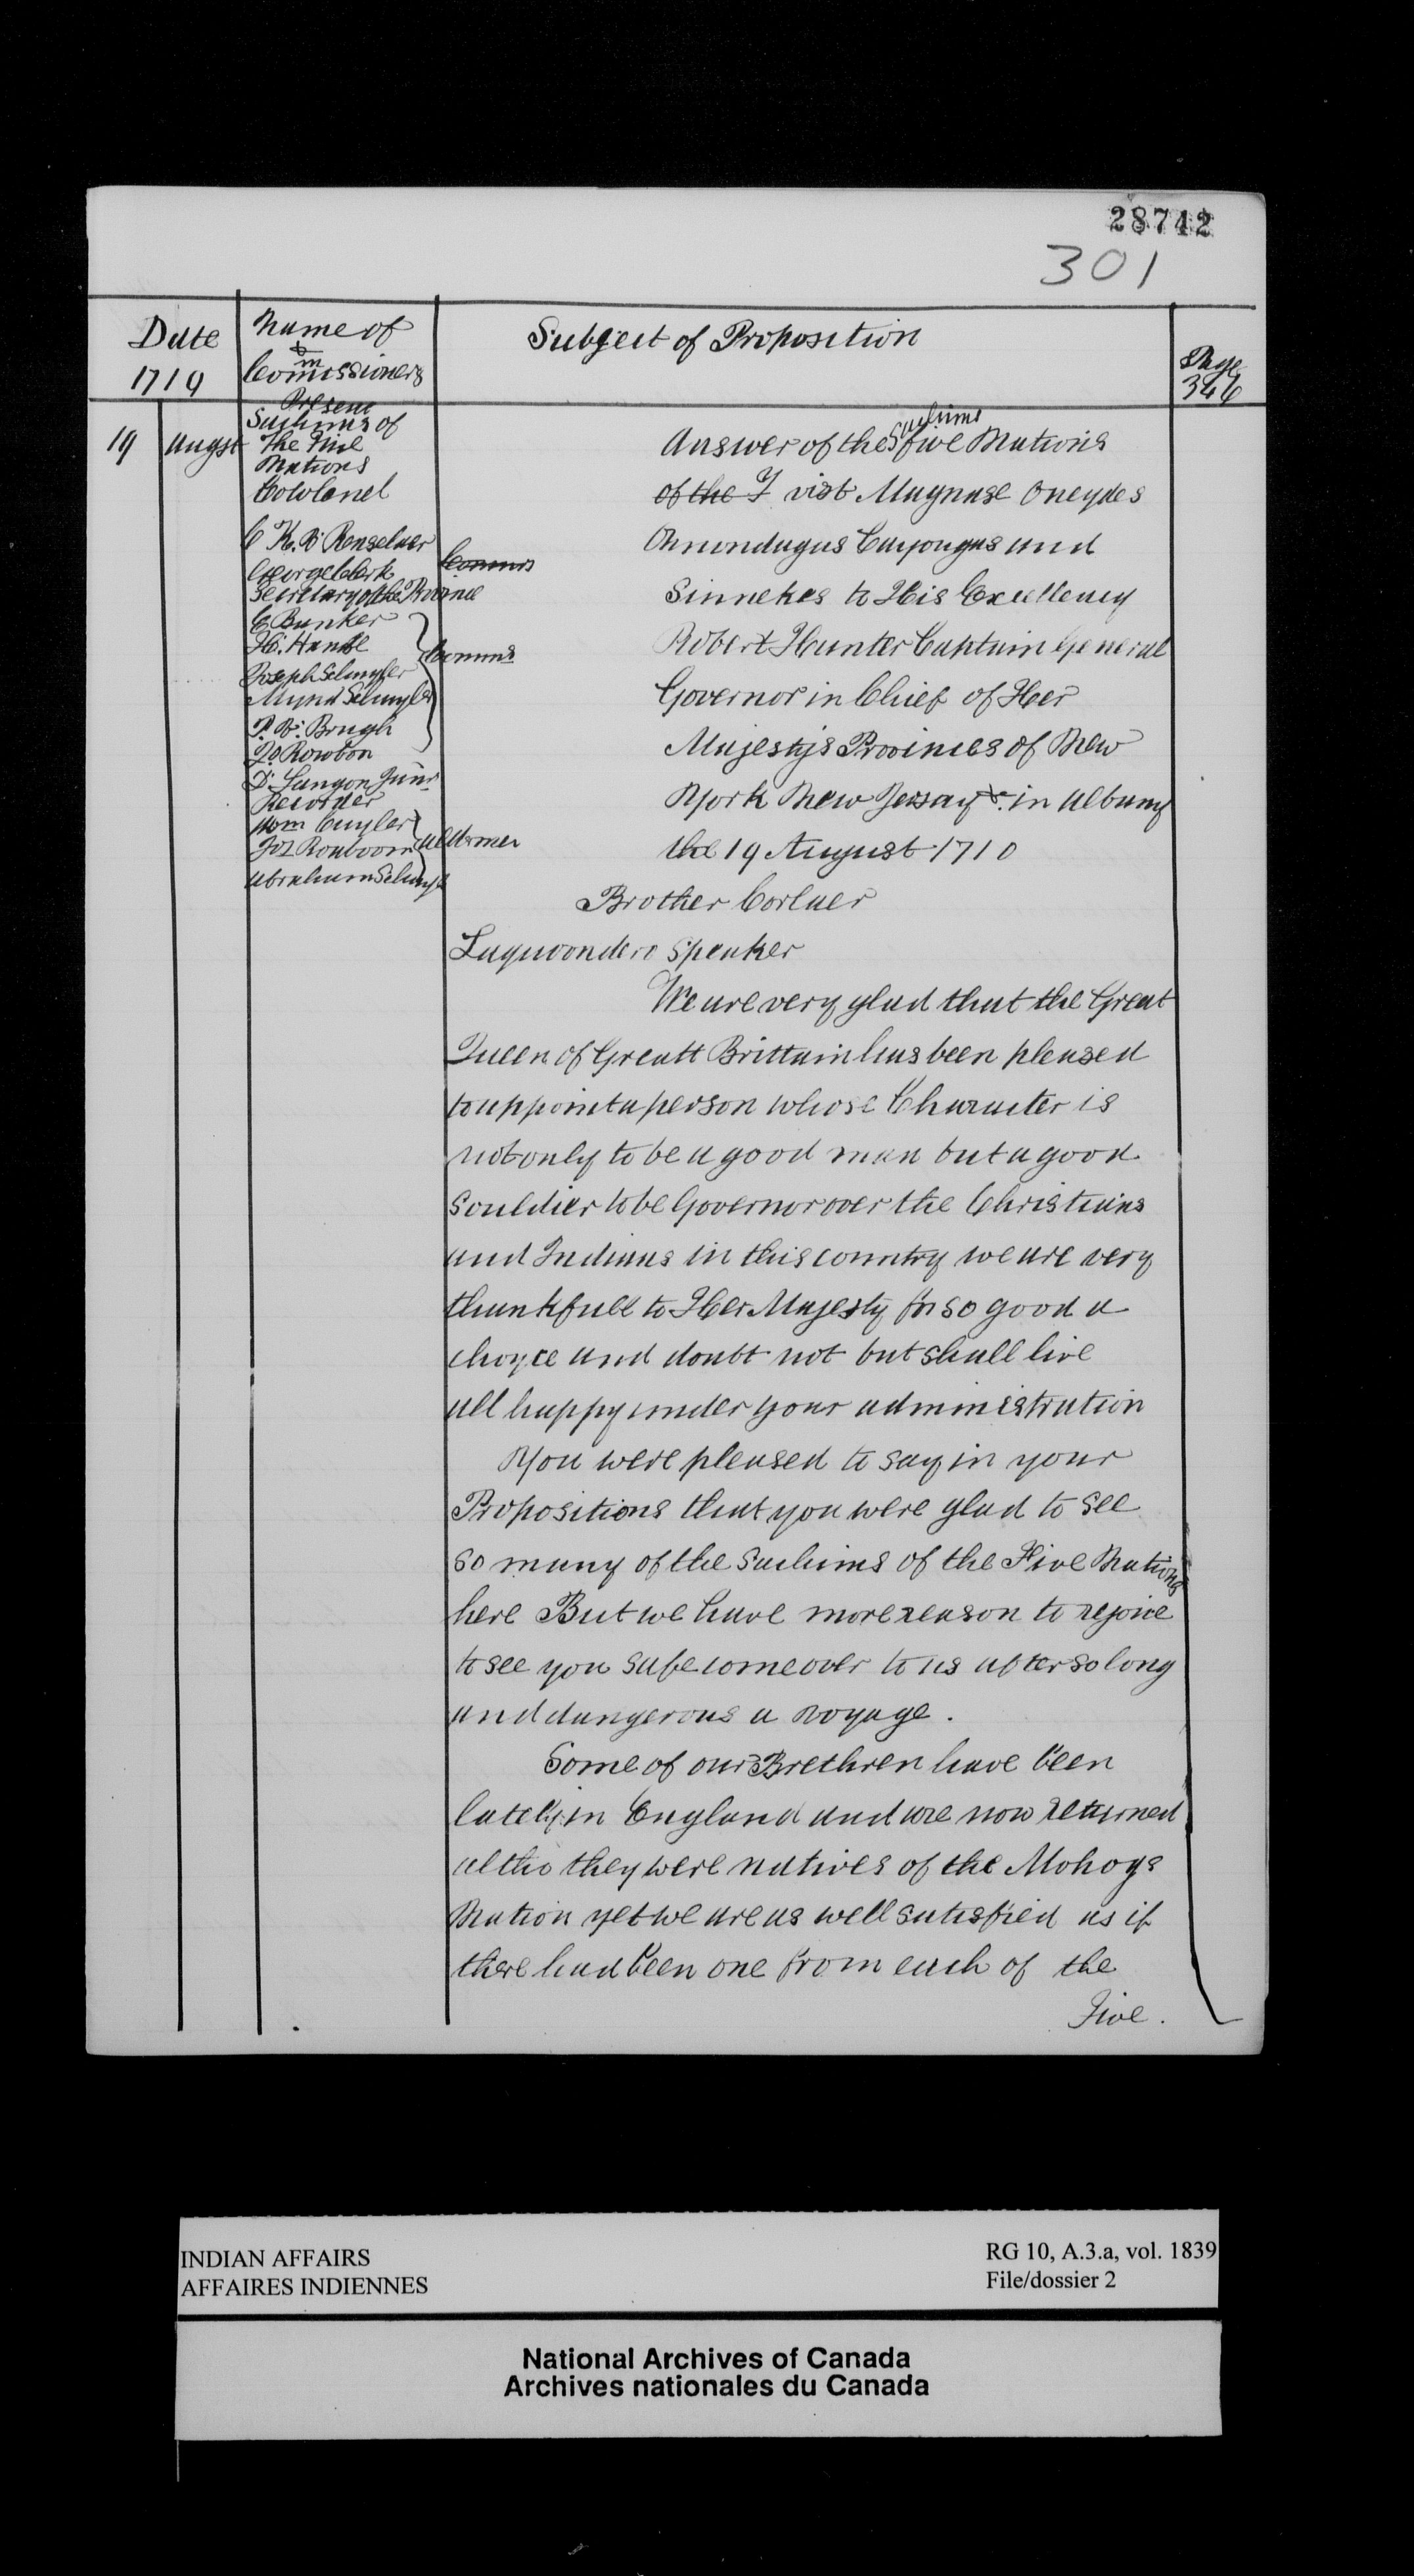 28742
301
Date
1710
Name of
Commissioners
Subject of Proposition
Page
346
19 Augst
Present
Sachims of
The Five
Nations
Coll
K. V: Renselaer
George Clerk
Secretary of the Province
Comms
E Banker
H. Hanse
Joseph Schuyler
Mynd Schuyler
P. V: Brugh
Jo Rowbon
Comms
Recorder
Wm Cuyler
Abraham Schuyl
Aldermen
Answer of the Sachims five Nations
of the F vist Maquase Oneydes
Onnondagus Cayouges and
Sinnekes to His Excellency
Robert Hunter Captain General
Governor in Chief of Her
Majestys Provinces of New
York New Jersay &c. in Albany
the 19 August 1710
Brother Corlaer
Speaker
We are very glad that the Great
Queen of Greatt Brittain has been pleased
to appoint a person whose Character is
not only to be a good man but a good
Souldier to be Governor over the Christians
and Indians in this country we are very
thankfull to Her Majesty for so good a
choyce and doubt not but shall live
all happy under your administration
You were pleased to say in your
Propositions that you were glad to see
so many of the Sachims of the Five Nations
here But we have more reason to rejoice
to see you safe come over to us after so long
and dangerous a voyage.
Some of our Brethren have been
lately in England and are now returned
altho they were natives of the Mohogs
Nation yet we are as well satisfied as if
there had been one from each of the
Five.
INDIAN AFFAIRS
AFFAIRES INDIENNES
RG 10, A.3.a, vol. 1839
File/dossier 2
National Archives of Canada
Archives nationales du Canada